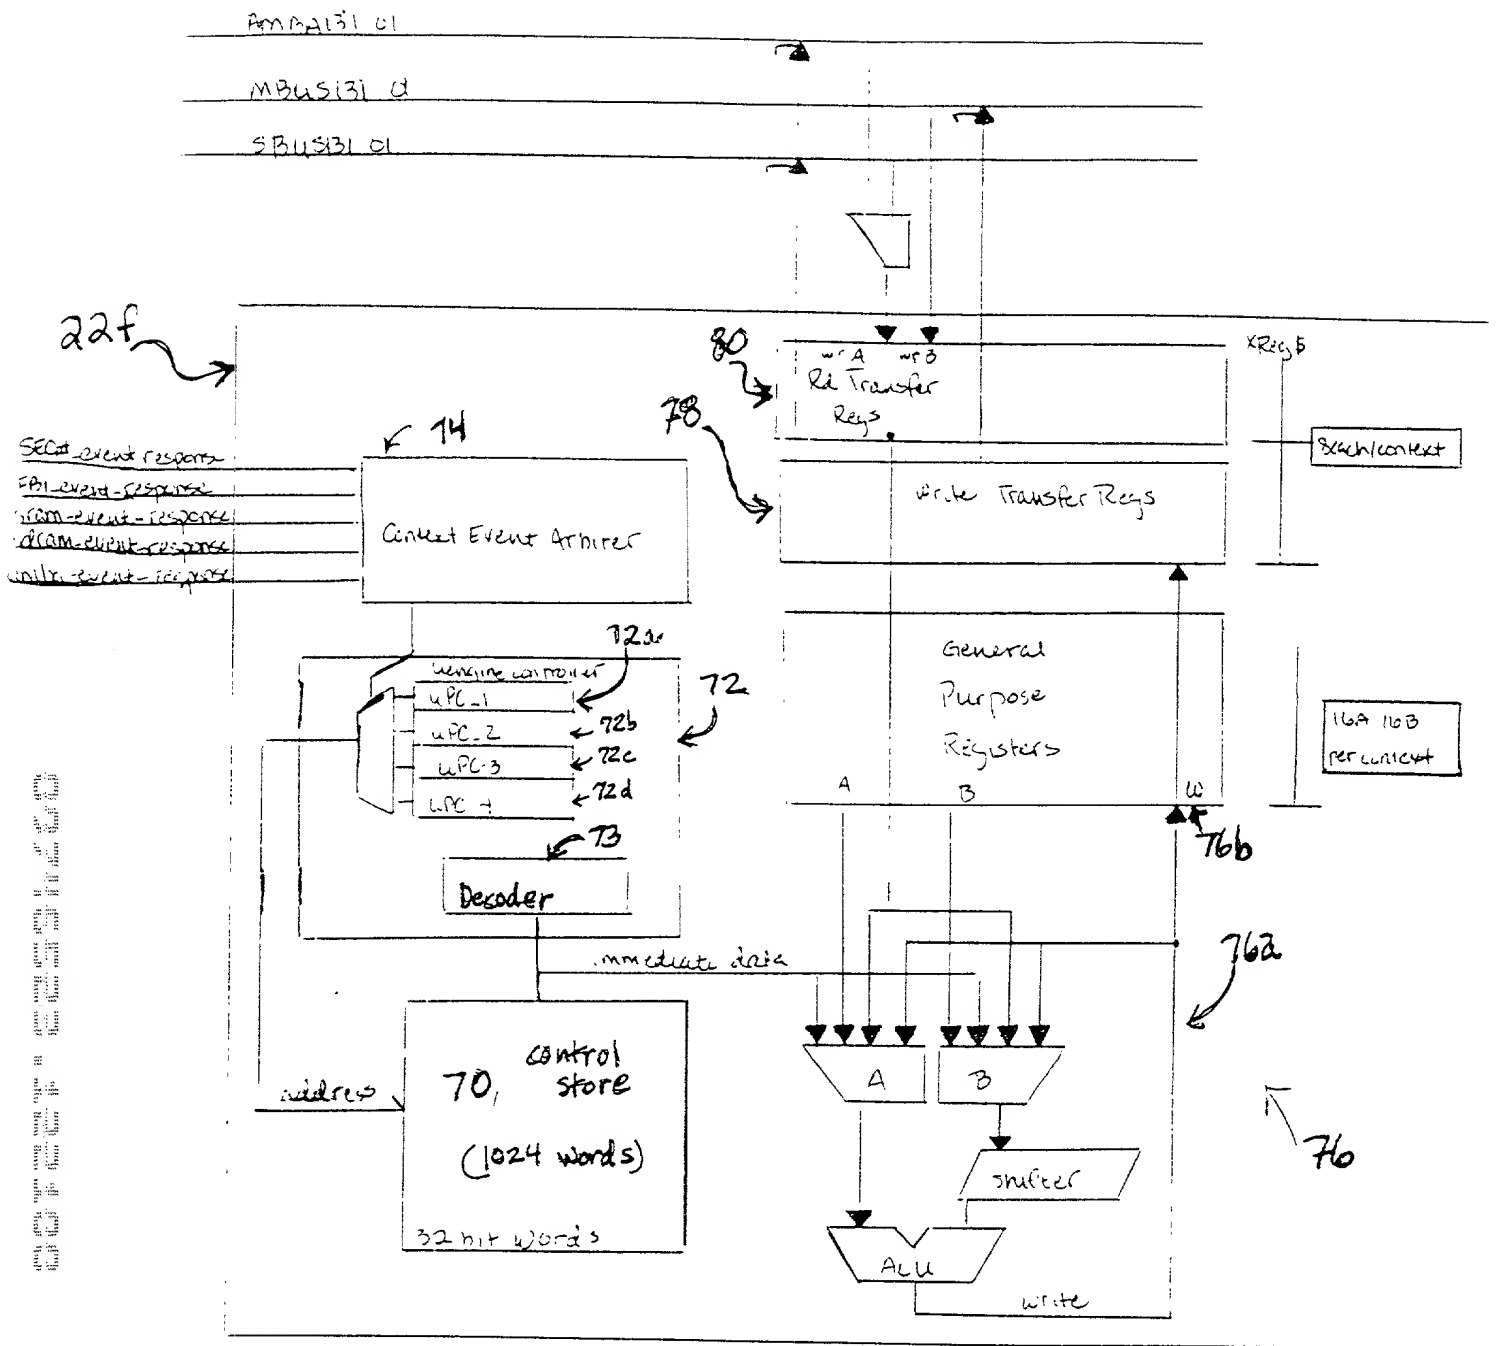 AMBA[31 0]
MBUS[31 0]
SBUS[31 0]
22f
80
wr A wr B
Rd Transfer
Regs
XRegs
78
8each/context
write Transfer Regs
74
event response
FBI_event-response
event-response
event-response
event-response
Context Event Arbiter
72a
uengine controller
uPC_1
uPC_2
uPC-3
uPC-4
72b
72c
72d
72
General
Purpose
Registers
A B W
16A 16B
per context
76b
73
Decoder
immediate data
76a
A B
address
70, control
store
(1024 words)
32 bit words
shifter
76
ALU
write